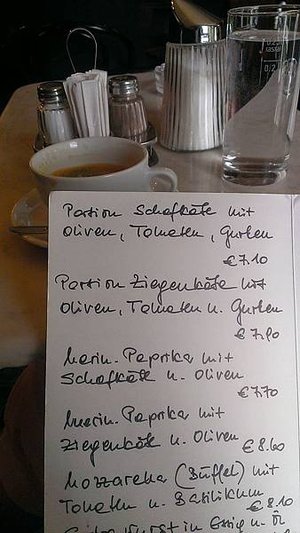 Portion Schafkäse mit
Oliven, Tomaten, Gurken
€ 7.10
Portion Ziegenkäse mit
Oliven, Tomaten u. Gurken
€ 7.90
Marin. Paprika mit
Schafkäse u. Oliven
€ 7.70
Marin. Paprika mit
Ziegenkäse u. Oliven € 8.60
Mozzarella (Büffel) mit
Tomaten u. Basilikum
€ 8.10
in Essig u. Öl
0,2